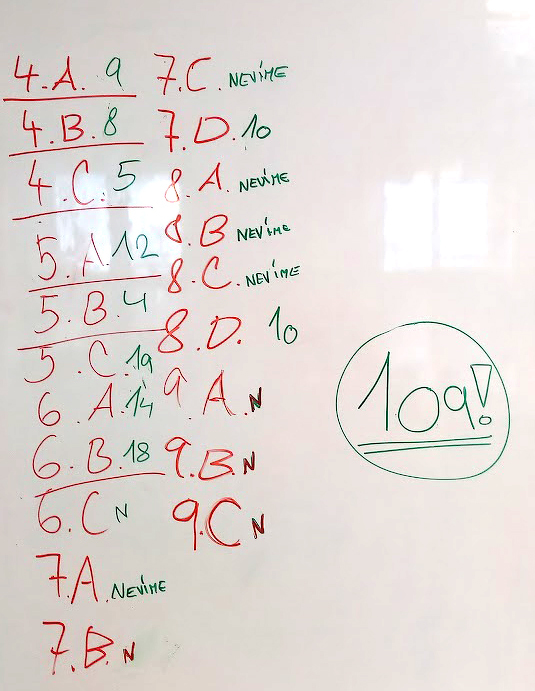 4.A. 9
4.B. 8
4.C. 5
5.A. 12
5.B. 4
5.C. 19
6.A. 14
6.B. 18
6.C N
7.A. NEVÍME
7.B. N
7.C. NEVÍME
7.D. 10
8.A. NEVÍME
8.B NEVÍME
8.C. NEVÍME
8.D. 10
9.A. N
9.B. N
9.C N
109!